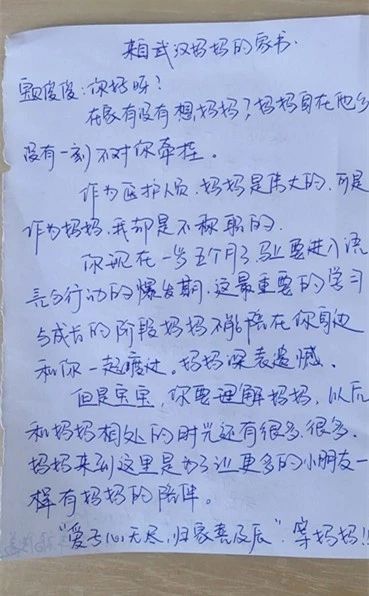 来自武汉妈妈的家书
俊俊:你好呀?
在家有没有想妈妈?妈妈身在他乡
没有一刻不对你牵挂。
作为医护人员,妈妈是伟大的,可是
作为妈妈,我却是不称职的.
你现在一岁五个月了,马上要进入语
言与行动的爆发期,这最重要的学习
与成长的阶段妈妈不能陪在你身边
和你一起度过。妈妈深表遗憾.
但是宝宝,你要理解妈妈,以后
和妈妈相处的时光还有很多,很多.
妈妈来到这里是为了让更多的小朋友一
样有妈妈的陪伴。
“爱子心无尽,归家喜及辰”.等妈妈!!